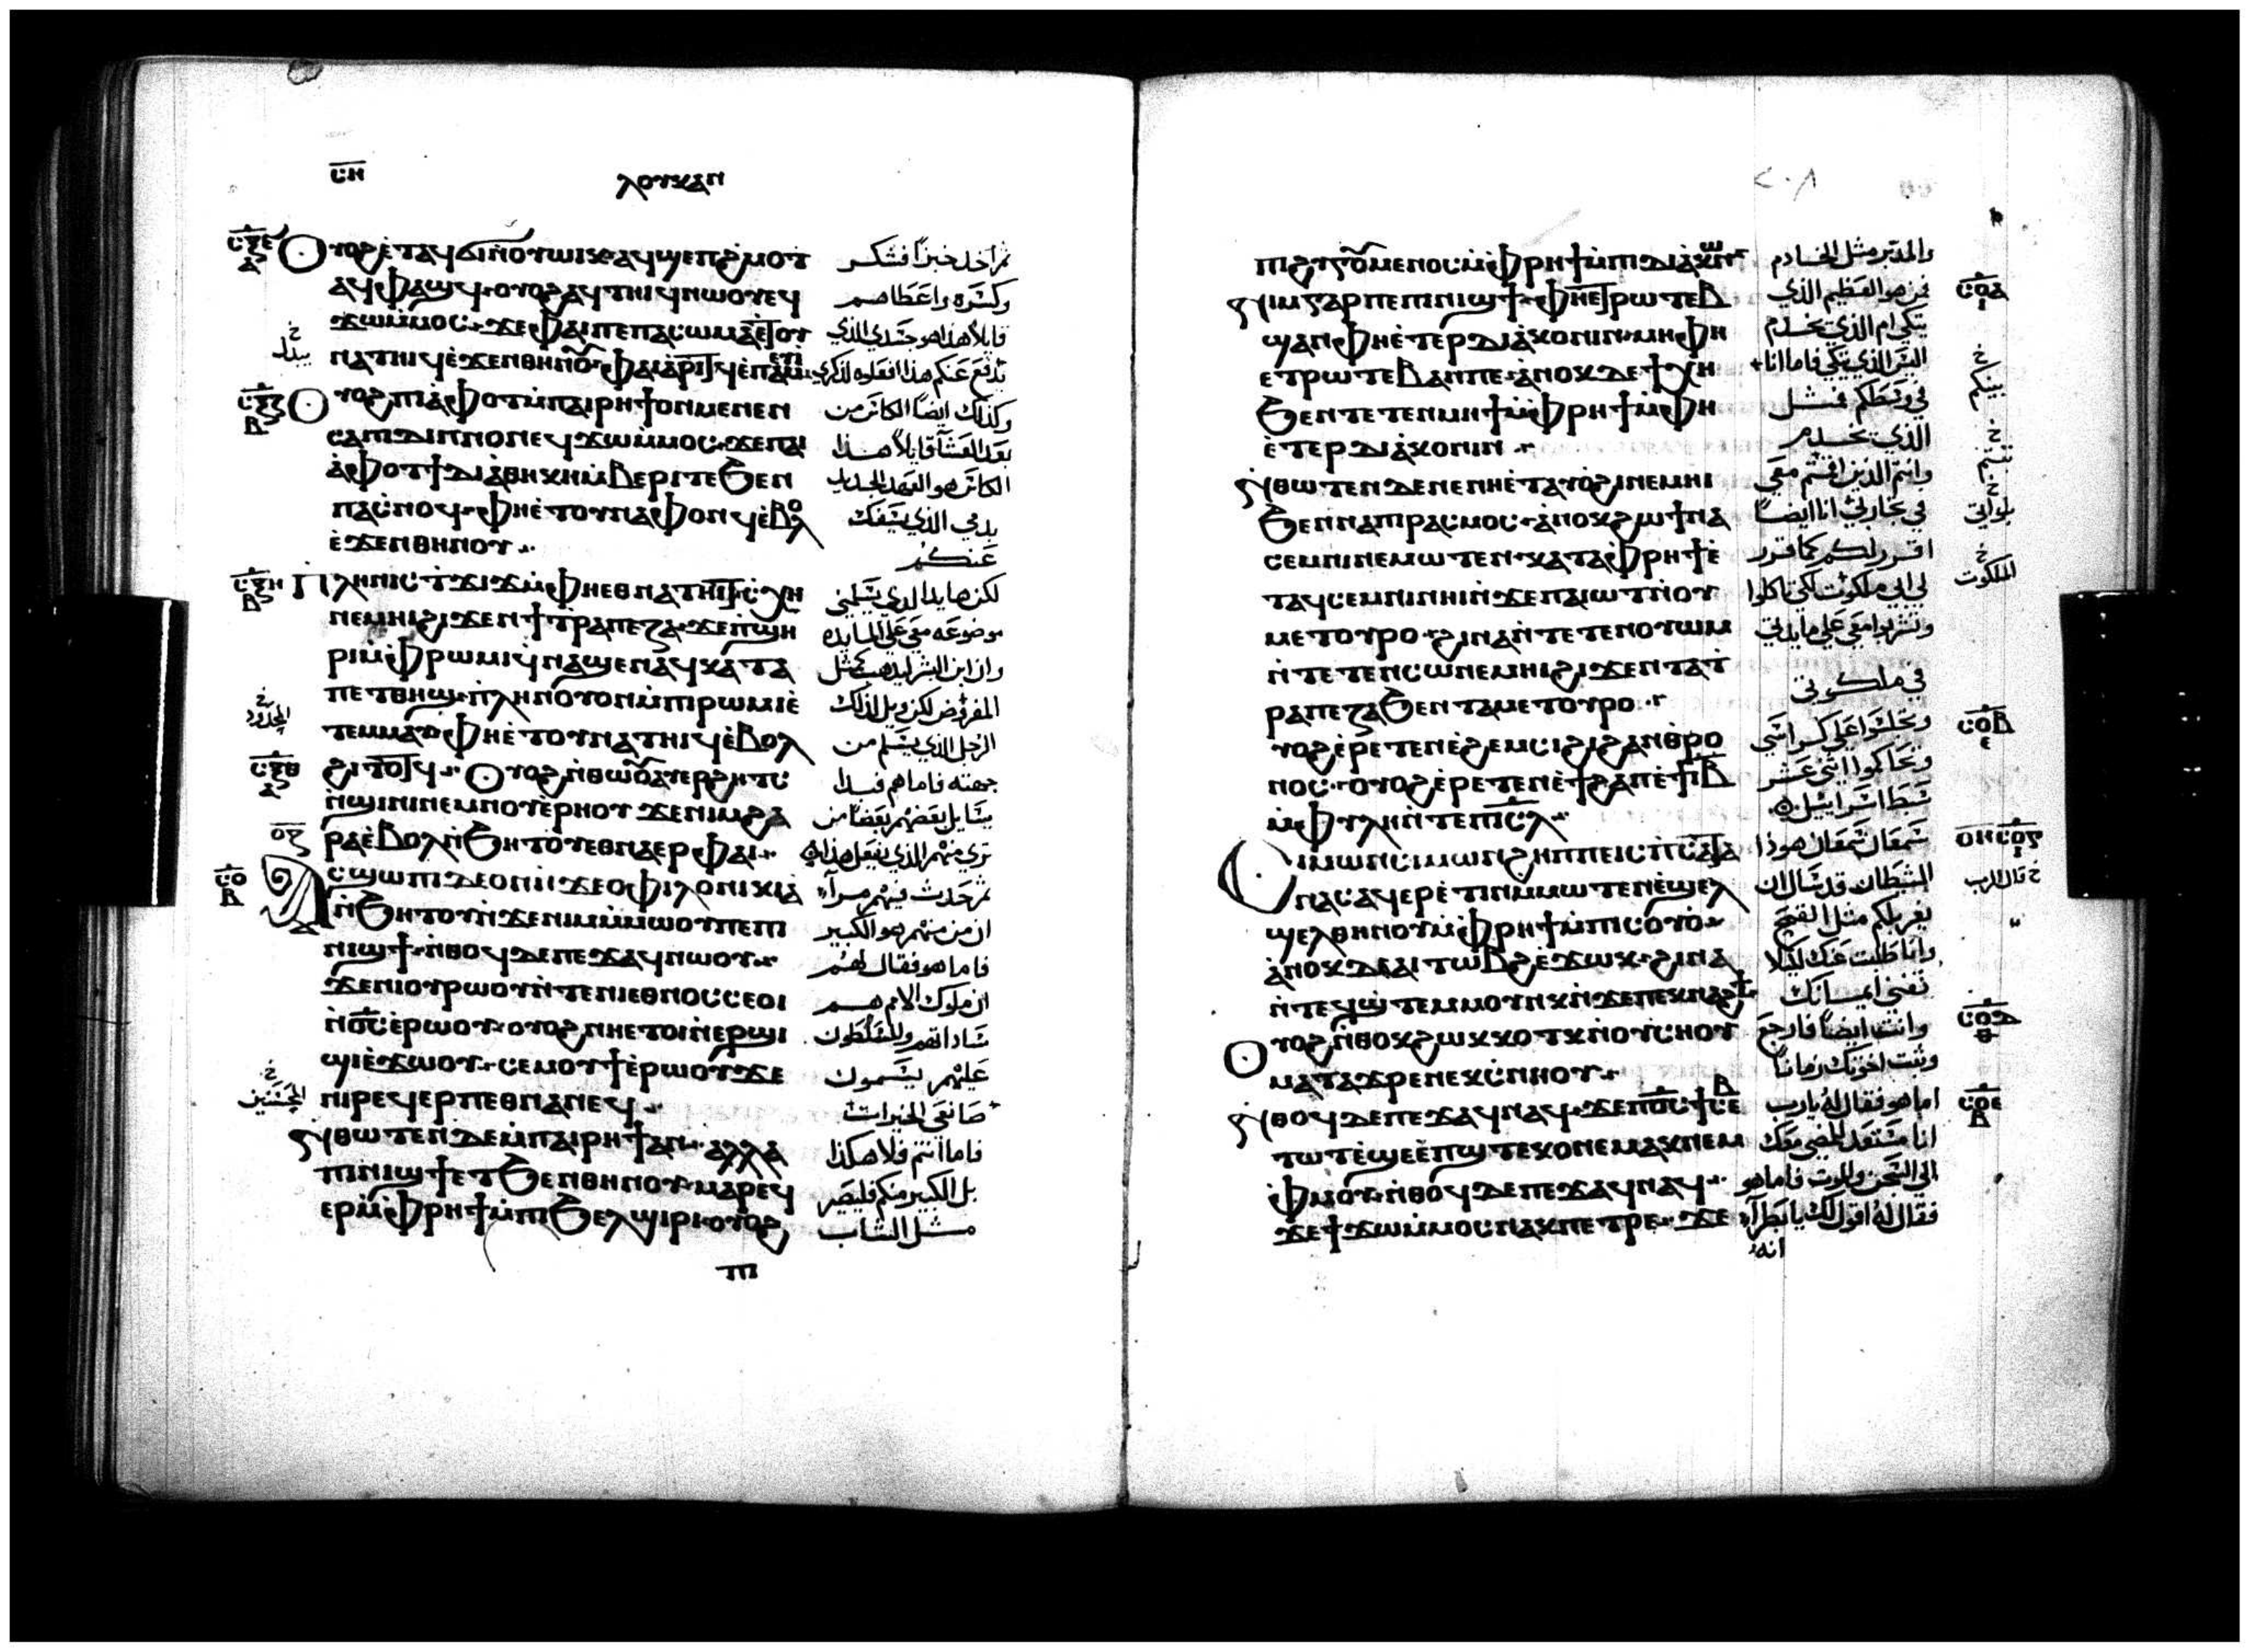 ⲥⲏ ⲗⲟⲩⲕⲁⲛ
ⲟⲩⲟϩ ⲉⲧⲁϥϭⲓ ⲛⲟⲩⲱⲓⲕ ⲁϥϣⲉⲡϩⲙⲟⲧ
ثم اخد خبزاً فشكر
ⲁϥⲫⲁϣϥ ⲟⲩⲟϩ ⲁϥⲧⲏⲓϥ ⲛⲱⲟⲩ ⲉϥ
وكسره واعطاهم
ϫⲱ ⲙⲙⲟⲥ ϫⲉ ⲫⲁⲓ ⲡⲉ ⲡⲁⲥⲱⲙⲁ ⲉⲧⲟⲩ
قايلا هذا هو جسدي الذي
ⲛⲁⲧⲏⲓϥ ⲉϫⲉⲛ ⲑⲏⲛⲟⲩ ⲫⲁⲓ ⲁⲣⲓⲧϥ
يدفع عنكم هذا افعلوه لذكري
ⲟⲩⲟϩ ⲡⲓⲁⲫⲟⲧ ⲙⲡⲁⲓⲣⲏϯ ⲟⲛ ⲙⲉⲛⲉⲛ
وكذلك ايضاً الكاس من
ⲥⲁ ⲡⲓⲇⲓⲡⲛⲟⲛ ⲉϥϫⲱ ⲙⲙⲟⲥ ϫⲉ ⲡⲁⲓ
بعد العشا قايلاً هذا
ⲁⲫⲟⲧ ϯⲇⲓⲁⲑⲏⲕⲏ ⲙⲃⲉⲣⲓ ⲧⲉ ϧⲉⲛ
الكاس هو العهد الجديد
ⲡⲁⲥⲛⲟϥ ⲫⲏ ⲉⲧⲟⲩⲛⲁⲫⲟⲛϥ ⲉⲃⲟⲗ
بدمي الذي يسفك
ⲉϫⲉⲛ ⲑⲏⲛⲟⲩ
عنكم
ⲡⲗⲏⲛ ⲓⲥ ⲧϫⲓϫ ⲙⲫⲏ ⲉⲑⲛⲁⲧⲏⲓⲧ ⲥⲭⲏ
لكن ها يد الدي يسلمني
ⲛⲉⲙⲏⲓ ϩⲓϫⲉⲛ ϯⲧⲣⲁⲡⲉⲍⲁ ϫⲉ ⲡϣⲏ
موضوعه معي على المايده
ⲣⲓ ⲙⲫⲣⲱⲙⲓ ϥⲛⲁϣⲉⲛⲁϥ ⲕⲁⲧⲁ
وان ابن البشر ليذهب كمثل
ⲡⲉⲧⲑⲏϣ ⲡⲗⲏⲛ ⲟⲩⲟⲓ ⲙⲡⲓⲣⲱⲙⲓ ⲉ
المفروض لكن ويل لذلك
ⲧⲉⲙⲙⲁⲩ ⲫⲏ ⲉⲧⲟⲩⲛⲁⲧⲏⲓϥ ⲉⲃⲟⲗ
الرجل الذي يسلم من
ϩⲓⲧⲟⲧϥ ⲟⲩⲟϩ ⲛⲑⲱⲟⲩ ⲁⲩⲉⲣϩⲏⲧⲥ
جهته فاما هم فبدا
ⲛϣⲓⲛⲓ ⲛⲉⲙ ⲛⲟⲩⲉⲣⲏⲟⲩ ϫⲉ ⲛⲓⲙ ϩⲁ
يسايل بعضهم بعضاً من
ⲣⲁ ⲉⲃⲟⲗ ⲛϧⲏⲧⲟⲩ ⲉⲑⲛⲁⲉⲣ ⲫⲁⲓ
تري منهم الذي يفعل هذا
ⲁⲥϣⲱⲡⲓ ⲇⲉ ⲟⲛ ⲛϫⲉ ⲟⲩⲫⲓⲗⲟⲛⲓⲕⲓⲁ
ثم حدث فيهم مرآء
ⲛϧⲏⲧⲟⲩ ϫⲉ ⲛⲓⲙ ⲙⲙⲱⲟⲩ ⲡⲉ ⲡⲓ
ان من منهم هو الكبير
ⲛⲓϣϯ ⲛⲑⲟϥ ⲇⲉ ⲡⲉϫⲁϥ ⲛⲱⲟⲩ
فاما هو فقال لهم
ϫⲉ ⲛⲓⲟⲩⲣⲱⲟⲩ ⲛⲧⲉ ⲛⲓⲉⲑⲛⲟⲥ ⲥⲉⲟⲓ
ان ملوك الامم هم
ⲛⲟⲥ ⲉⲣⲱⲟⲩ ⲟⲩⲟϩ ⲛⲏ ⲉⲧⲟⲓ ⲛⲉⲣϣⲓ
ساداتهم والمسلطون
ϣⲓ ⲉϫⲱⲟⲩ ⲥⲉⲙⲟⲩϯ ⲉⲣⲱⲟⲩ ϫⲉ
عليهم يسمون
ⲛⲓⲣⲉϥⲉⲣⲡⲉⲑⲛⲁⲛⲉϥ
صانعي الخيرات
ⲛⲑⲱⲧⲉⲛ ⲇⲉ ⲙⲡⲁⲓⲣⲏϯ ⲁⲛ ⲁⲗⲗⲁ
فاما انتم فلا هكذا
ⲡⲓⲛⲓϣϯ ⲉⲧϧⲉⲛ ⲑⲏⲛⲟⲩ ⲙⲁⲣⲉϥ
بل الكبير منكم فليصر
ⲉⲣ ⲙⲫⲣⲏϯ ⲙⲡⲓϧⲉⲗϣⲓⲣⲓ ⲟⲩⲟϩ
مثل الشاب
ⲡⲓ
٢٠٨
ⲡⲓϩⲩⲅⲟⲩⲙⲉⲛⲟⲥ ⲙⲫⲣⲏϯ ⲙⲡⲓⲇⲓⲁⲕⲱⲛ
والمدبر مثل الخادم
ⲛⲓⲙ ⲅⲁⲣ ⲡⲉ ⲡⲓⲛⲓϣϯ ⲫⲏ ⲉⲧⲣⲱⲧⲉⲃ
فمن هو العظيم الذي
ϣⲁⲛ ⲫⲏ ⲉⲧⲉⲣⲇⲓⲁⲕⲟⲛⲓⲛ ⲙⲏ ⲫⲏ
يتكي ام الذي يخدم
ⲉⲧⲣⲱⲧⲉⲃ ⲁⲛ ⲡⲉ ⲁⲛⲟⲕ ⲇⲉ ϯⲭⲏ
اليس الذي يتكي فاما انا
ϧⲉⲛ ⲧⲉⲧⲉⲛⲙⲏϯ ⲙⲫⲣⲏϯ ⲙⲫⲏ
في وسطكم فمثل
ⲉⲧⲉⲣⲇⲓⲁⲕⲟⲛⲓⲛ
الذي يخدم
ⲛⲑⲱⲧⲉⲛ ⲇⲉ ⲛⲉ ⲛⲏ ⲉⲧⲁⲩⲟϩⲓ ⲛⲉⲙⲏⲓ
وانتم الذين اقمتم معي
ϧⲉⲛ ⲛⲁⲡⲓⲣⲁⲥⲙⲟⲥ ⲁⲛⲟⲕ ϩⲱ ϯⲛⲁ
في تجاربي انا ايضاً
ⲥⲉⲙⲛⲓ ⲛⲉⲙⲱⲧⲉⲛ ⲕⲁⲧⲁ ⲫⲣⲏϯ ⲉ
اقرر لكم كما قرر
ⲧⲁϥⲥⲉⲙⲛⲓ ⲛⲏⲓ ⲛϫⲉ ⲡⲁⲓⲱⲧ ⲛⲟⲩ
لي ابي ملكوت لكي تاكلوا
ⲙⲉⲧⲟⲩⲣⲟ ϩⲓⲛⲁ ⲛⲧⲉⲧⲉⲛⲟⲩⲱⲙ
وتشربوا معي على مايدتي
ⲛⲧⲉⲧⲉⲛⲥⲱ ⲛⲉⲙⲏⲓ ϩⲓϫⲉⲛ ⲧⲁⲧ
ⲣⲁⲡⲉⲍⲁ ϧⲉⲛ ⲧⲁⲙⲉⲧⲟⲩⲣⲟ
في ملكوتي
ⲩⲟϩ ⲉⲣⲉⲧⲉⲛⲉϩⲉⲙⲥⲓ ϩⲓ ϩⲁⲛⲑⲣⲟ
وتجلسوا على كراسي
ⲛⲟⲥ ⲟⲩⲟϩ ⲉⲣⲉⲧⲉⲛⲉϯϩⲁⲡ ⲉϯⲓⲃ
وتحاكموا اثني عشر
ⲙⲫⲩⲗⲏ ⲛⲧⲉ ⲡⲓⲥⲗ
سبط اسراييل
ⲥⲓⲙⲱⲛ ⲥⲓⲙⲱⲛ ϩⲏⲡⲡⲉ ⲓⲥ ⲡⲥⲁⲧⲁ
سمعان سمعان هوذا
ⲛⲁⲥ ⲁϥⲉⲣⲉⲧⲓⲛ ⲙⲙⲱⲧⲉⲛ ⲉϣⲉⲗ
الشيطان قد سال ان
ϣⲉⲗ ⲑⲏⲛⲟⲩ ⲙⲫⲣⲏϯ ⲙⲡⲓⲥⲟⲩⲟ
يغربلكم مثل القمح
ⲁⲛⲟⲕ ⲇⲉ ⲁⲓⲧⲱⲃϩ ⲉϫⲱⲕ ϩⲓⲛⲁ
وانا طلبت عنك لكيلا
ⲛⲧⲉϥϣⲧⲉⲙⲙⲟⲩⲛⲕ ⲛϫⲉ ⲡⲉⲕⲛⲁϩϯ
تفني ايمانك
ⲟⲩⲟϩ ⲛⲑⲟⲕ ϩⲱⲕ ⲕⲟⲧⲕ ⲛⲟⲩⲥⲛⲟⲩ
وانت ايضاً فارجع
ⲙⲁⲧⲁϫⲣⲉ ⲛⲉⲕⲥⲛⲏⲟⲩ
وثبت اخوتك زماناً
ⲛⲑⲟϥ ⲇⲉ ⲡⲉϫⲁϥ ⲛⲁϥ ϫⲉ ⲡⲟⲥ ϯⲥⲉⲃ
اما هو فقال له يارب
ⲧⲱⲧ ⲉϣⲉ ⲉⲡϣⲧⲉⲕⲟ ⲛⲉⲙⲁⲕ ⲛⲉⲙ
انا مستعد للمضي معك
ⲫⲙⲟⲩ ⲛⲑⲟϥ ⲇⲉ ⲡⲉϫⲁϥ ⲛⲁϥ
الى السجن والموت فاما هو
ϫⲉ ϯϫⲱ ⲙⲙⲟⲥ ⲛⲁⲕ ⲡⲉⲧⲣⲉ ϫⲉ
فقال له اقول لك يا بطرآء
انه